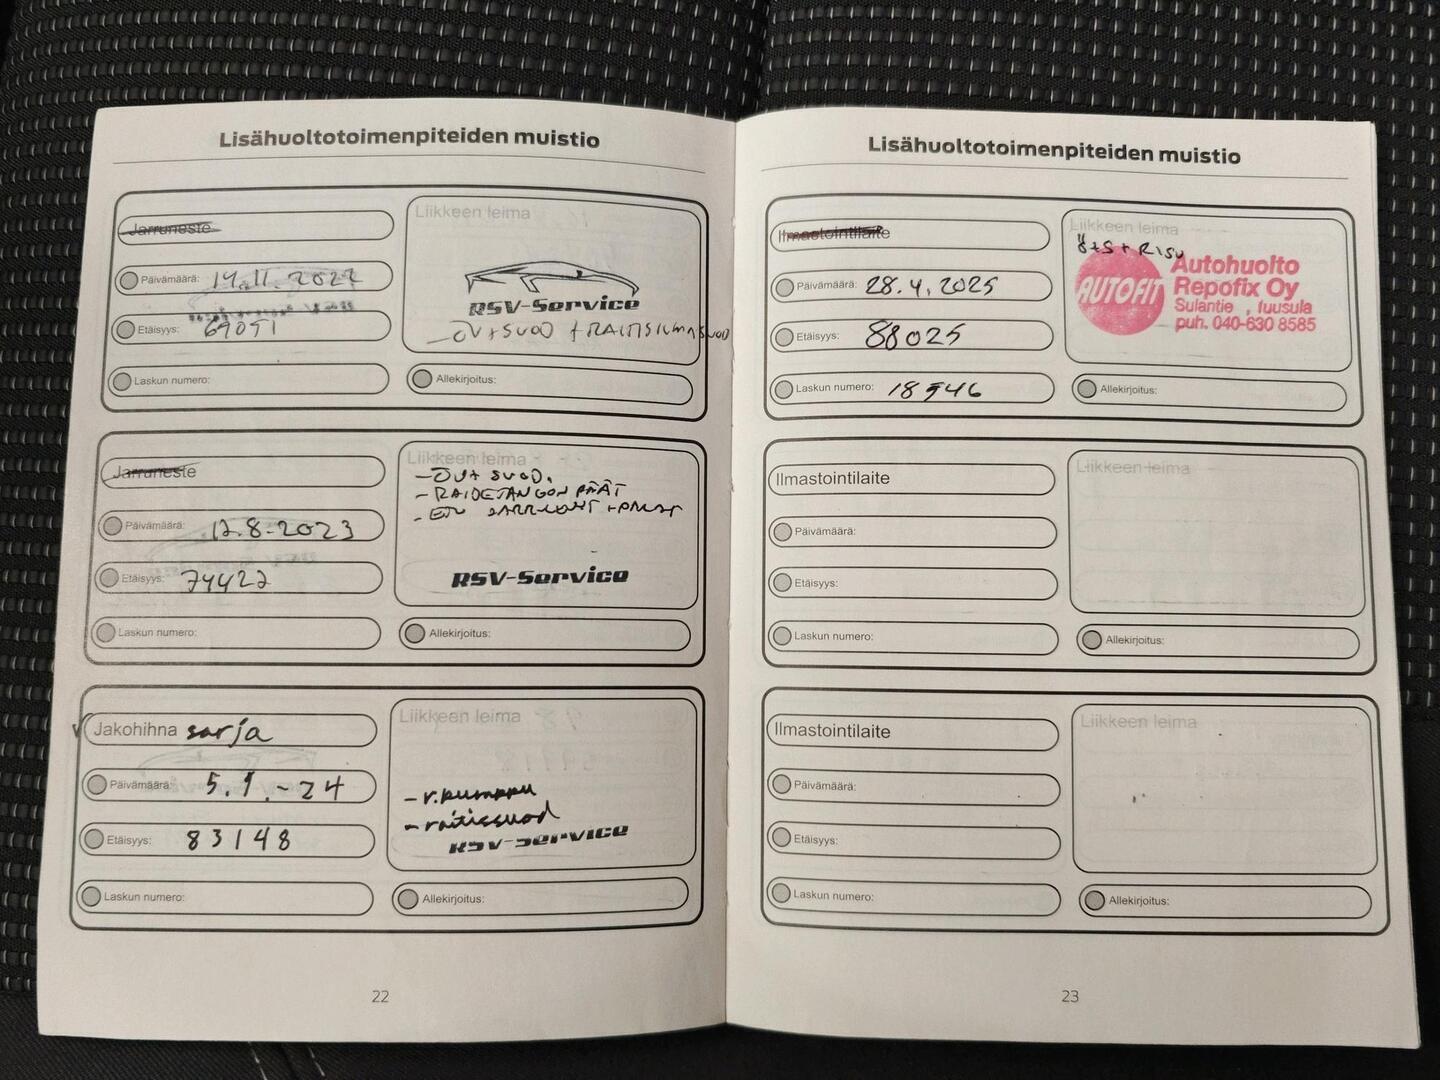 Lisähuoltotoimenpiteiden muistio
Jarruneste
Päivämäärä: 14.11.2022
Etäisyys: 69051
Laskun numero:
Liikkeen leima
RSV-Service
- ÖV+SUOD + RAITISILMASUOD
Allekirjoitus:
Jarruneste
Päivämäärä: 12.8-2023
Etäisyys: 74422
Laskun numero:
Liikkeen leima
- ÖV+ SUOD.
- RAIDETANGON PÄÄT
- ETU
RSV-Service
Allekirjoitus:
Jakohihna sarja
Päivämäärä: 5.1.-24
Etäisyys: 83148
Laskun numero:
Liikkeen leima
- v.pumppu
- raitissuod
RSV-Service
Allekirjoitus:
22
Lisähuoltotoimenpiteiden muistio
Ilmastointilaite
Päivämäärä: 28.4.2025
Etäisyys: 88025
Laskun numero: 18546
Liikkeen leima
Ö+S+RISU
AUTOFIT
Autohuolto
Repofix Oy
Sulantie , Tuusula
puh. 040-630 8585
Allekirjoitus:
Ilmastointilaite
Päivämäärä:
Etäisyys:
Laskun numero:
Liikkeen leima
Allekirjoitus:
Ilmastointilaite
Päivämäärä:
Etäisyys:
Laskun numero:
Liikkeen leima
Allekirjoitus:
23